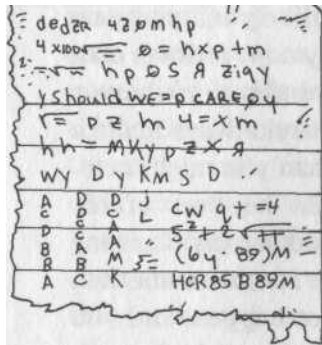 dedza 4zømhp
4x100√= ø=hxp+m
-√= hp ø S Я ziqy
y should WE=p CARE o y
√= p z m 4=xm
hh=MKypzxЯ
WY D y KM S D.
A D D J
C C C L CW qt=4
D C A 5²+2√11
B A A " (6y·89)M=
B B M 5=
A C K HCR85B89M